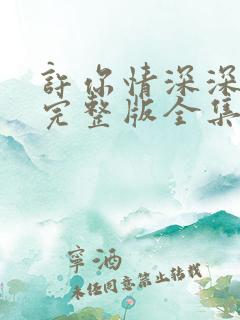 許你情深深
完整版全集
寧酒
未任同意禁止转载